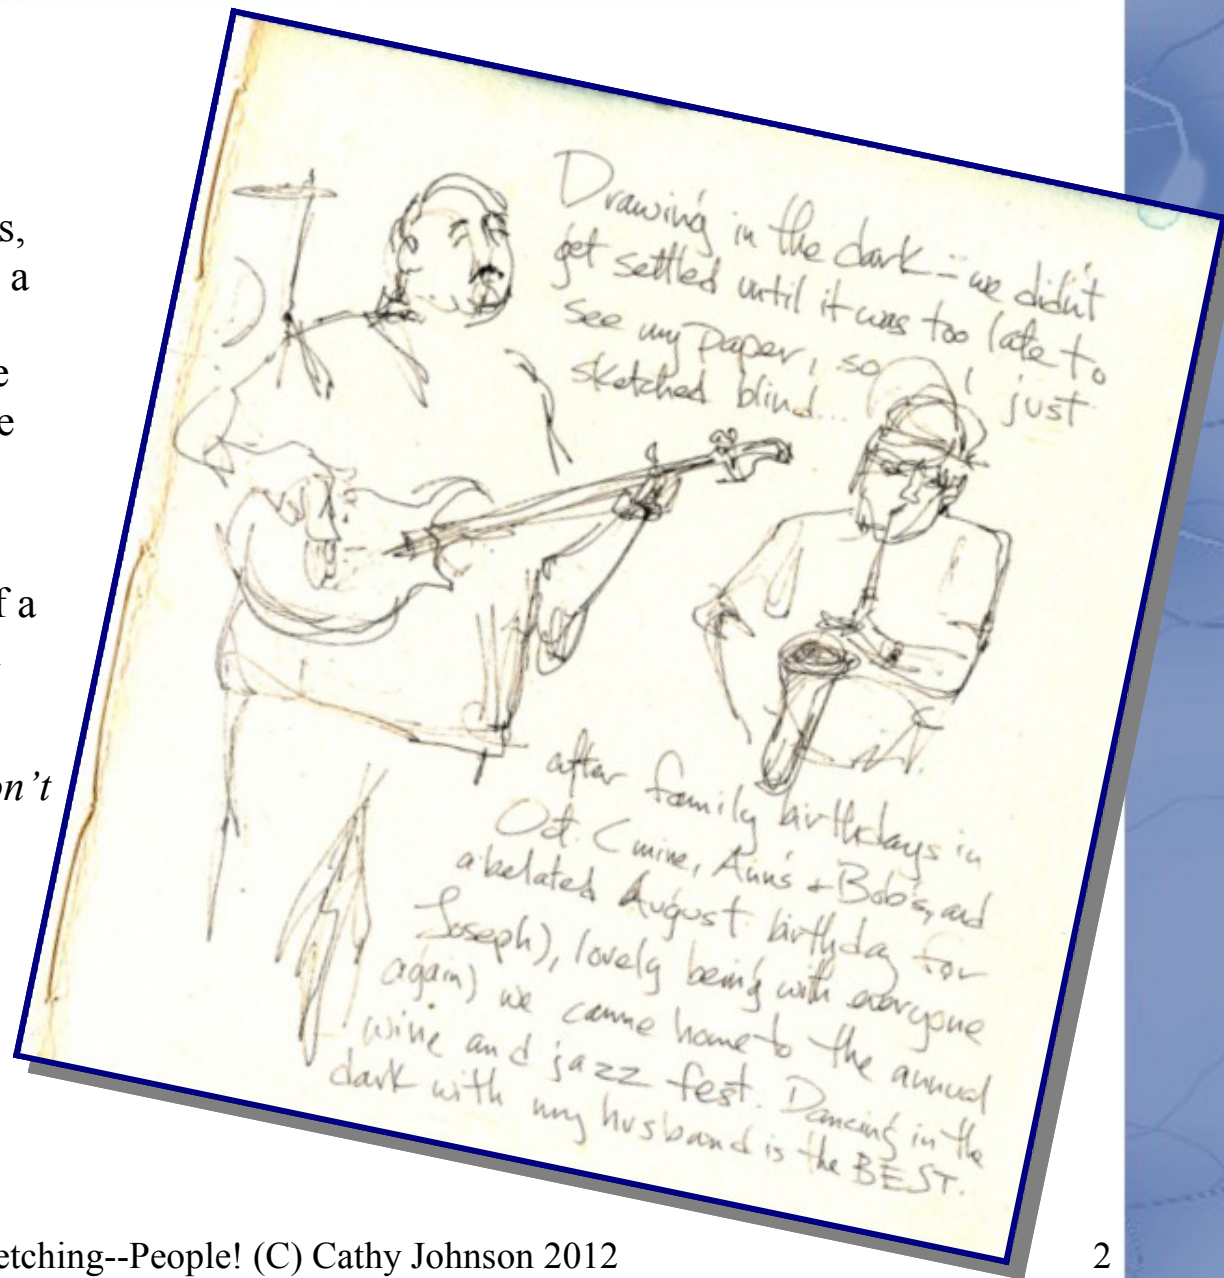 s,
a
e
e
f a
on't
Drawing in the dark – we didn't
get settled until it was too late to
see my paper, so I just
sketched blind...
after family birthdays in
Oct. (mine, Ann's + Bob's, and
a belated August birthday for
Joseph), lovely being with everyone
again) we came home to the annual
wine and jazz fest. Dancing in the
dark with my husband is the BEST.
etching--People! (C) Cathy Johnson 2012
2